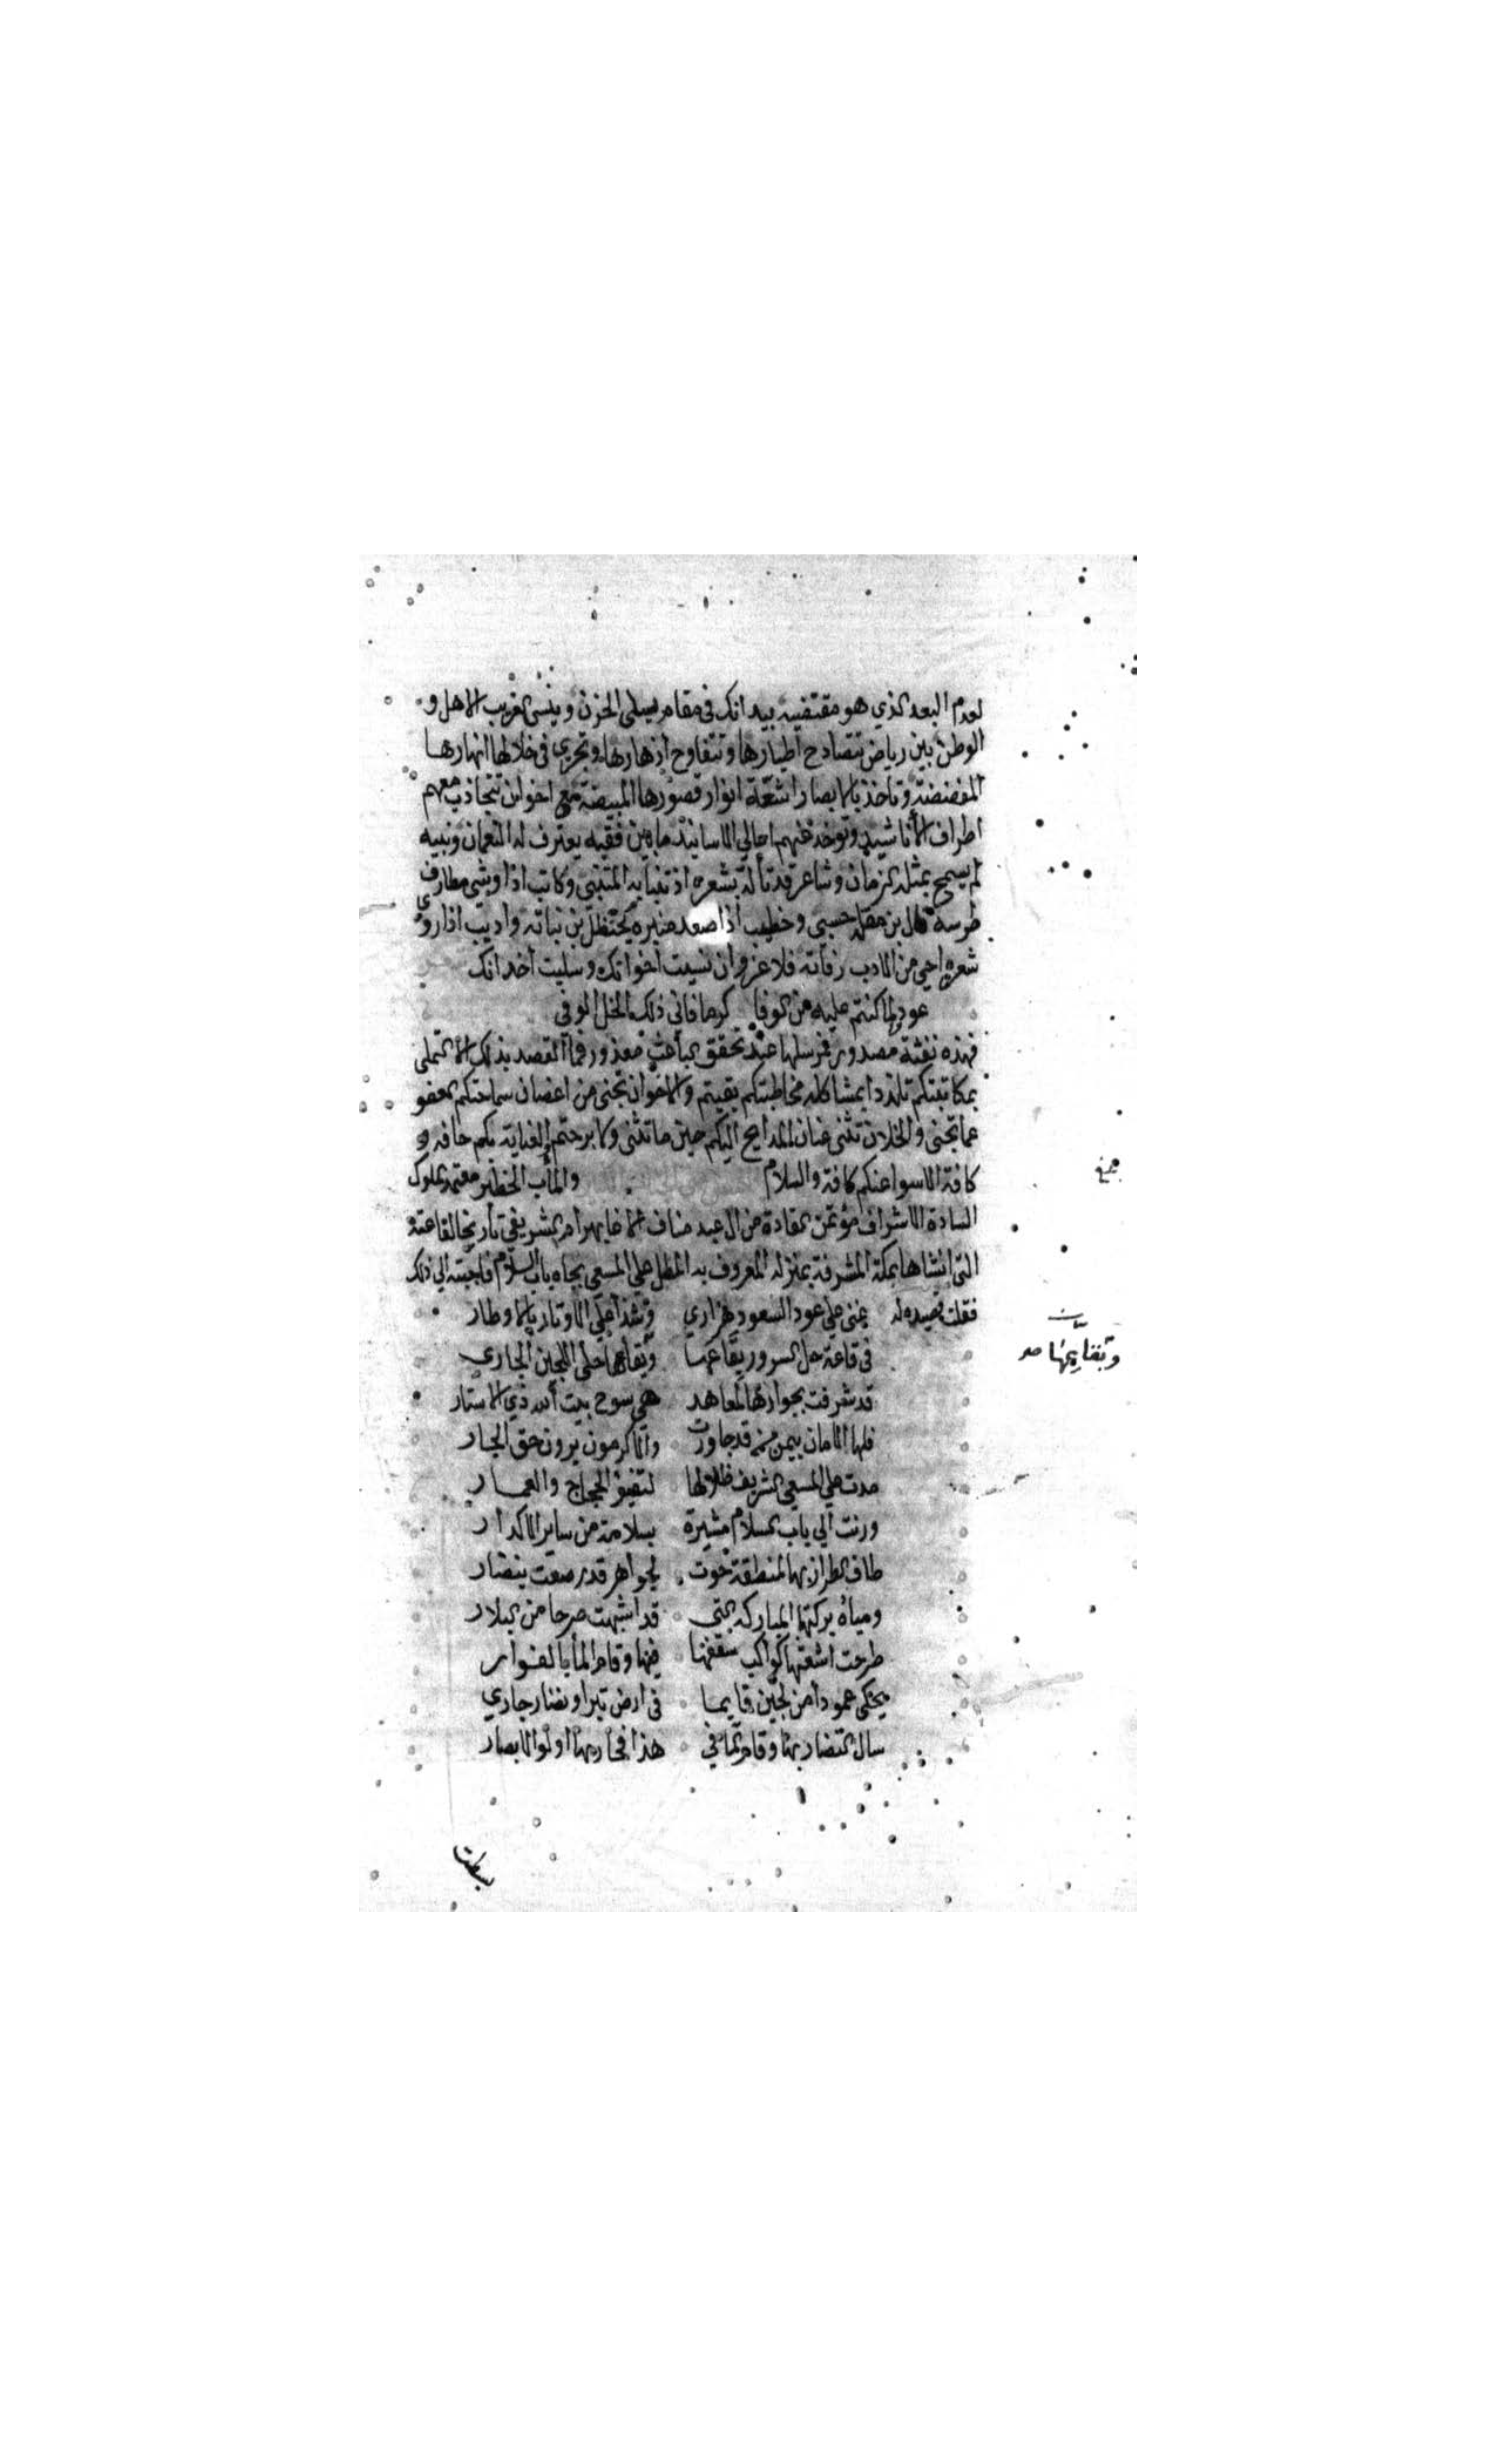 لعدم البعد الذي هو مقتفيه بيد انك في مقام يسلى الحزن وينسى الغريب الاهل و
الوطن بين رياض تتصادح اطيارها وتتفاوح ازهارها وتجري في خلالها انهارها
المفضضة وتاخذ بالابصار اشعة انوار قصورها المبيضة مع اخوان تتجاذب معهم
اطراف الاناشيد وتوخذ عنهم اعالي الاسانيد ما بين فقيه يعترف له النعمان ونبيه
لم يسمح بمثله الزمان وشاعر قد تأله بشعره اذ تنبا به المتنبي وكاتب اذا وشى مطارف
طرسه قال بن مقلة حسبي وخطيب اذا صعد منبره بن نباته واديب اذا روى
شعره احي من الادب رفاته فلا غرو ان نسيت اخوانك وسليت أخدانك
عودوا لما كنتم عليه من الوفا كرما فاني ذلك الخل الوفي
فهذه نفثة مصدور نرسلها عند تحقق الباعث معذور فما القصد بذلك الا التملي
بمكاتبتكم تلذذا بمشاكله مخاطبتكم بقيتم والاخوان تجنى من اغصان سماحتكم العفو
عما تجنى والخلان تثنى عنان المدايح اليكم حين ما تثنى ولا برحتم العناية بكم حافه و
كافة الاسوا عنكم كافة والسلام والمأب الخطير معتمد الملوك
السادة الاشراف مؤتمن القادة من ال عبد مناف بهرام الشريفي تأريخا لقاعته
التي انشاها بمكة المشرفة بمنزله المعروف به المطل على المسعى تجاه باب السلام فاجبته الي ذلك
فقلت قصيده له غنى على عود السعود هزاري وشدا على الاوتار بالاوطار
في قاعة حل السرور بقاعها وبقاعها حلى اللجين الجاري
قد شرفت بجوارها لمعاهد هي سوح بيت الله ذي الاستار
فلها الامان بيمن من قد جاورت والاكرمون يرون حق الجار
مدت على المسعى الشريف ظلالها لتفيؤ الحجاج والعمار
ورنت الي باب السلام مشيرة بسلامة من ساير الاكدار
طاف الطراز بها كمنطقة حوت لجواهر قد رصعت بنضار
ومياه بركتها المباركه التي قد اشبهت صرحا من البلار
طرحت اشعتها كواكب سقفها فيها وقام الما بالفوار
يحكى عمودا من لجين قايما في ارض تبر او نضار جاري
سال النضار بها وقام الما في هذا فحار بها اولو الابصار
صح
بسطت